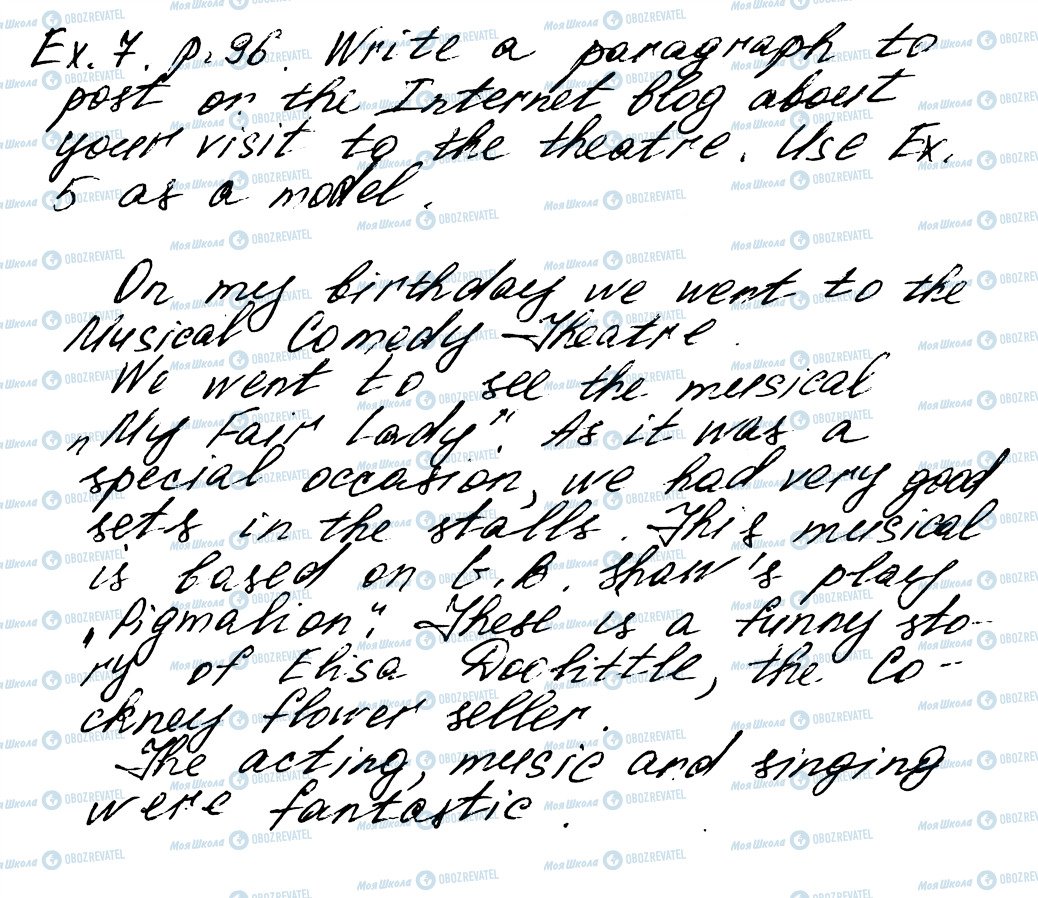 Ex. 7. p. 96. Write a paragraph to
post on the Internet blog about
your visit to the theatre. Use Ex.
5 as a model.
On my birthday we went to the
Musical Comedy Theatre.
We went to see the musical
„My Fair Lady". As it was a
special occasion, we had very good
sets in the stalls. This musical
is based on G. B. Shaw's play
„Pigmalion". These is a funny sto-
ry of Elisa Doolittle, the Co-
ckney flower seller.
The acting, music and singing
were fantastic.